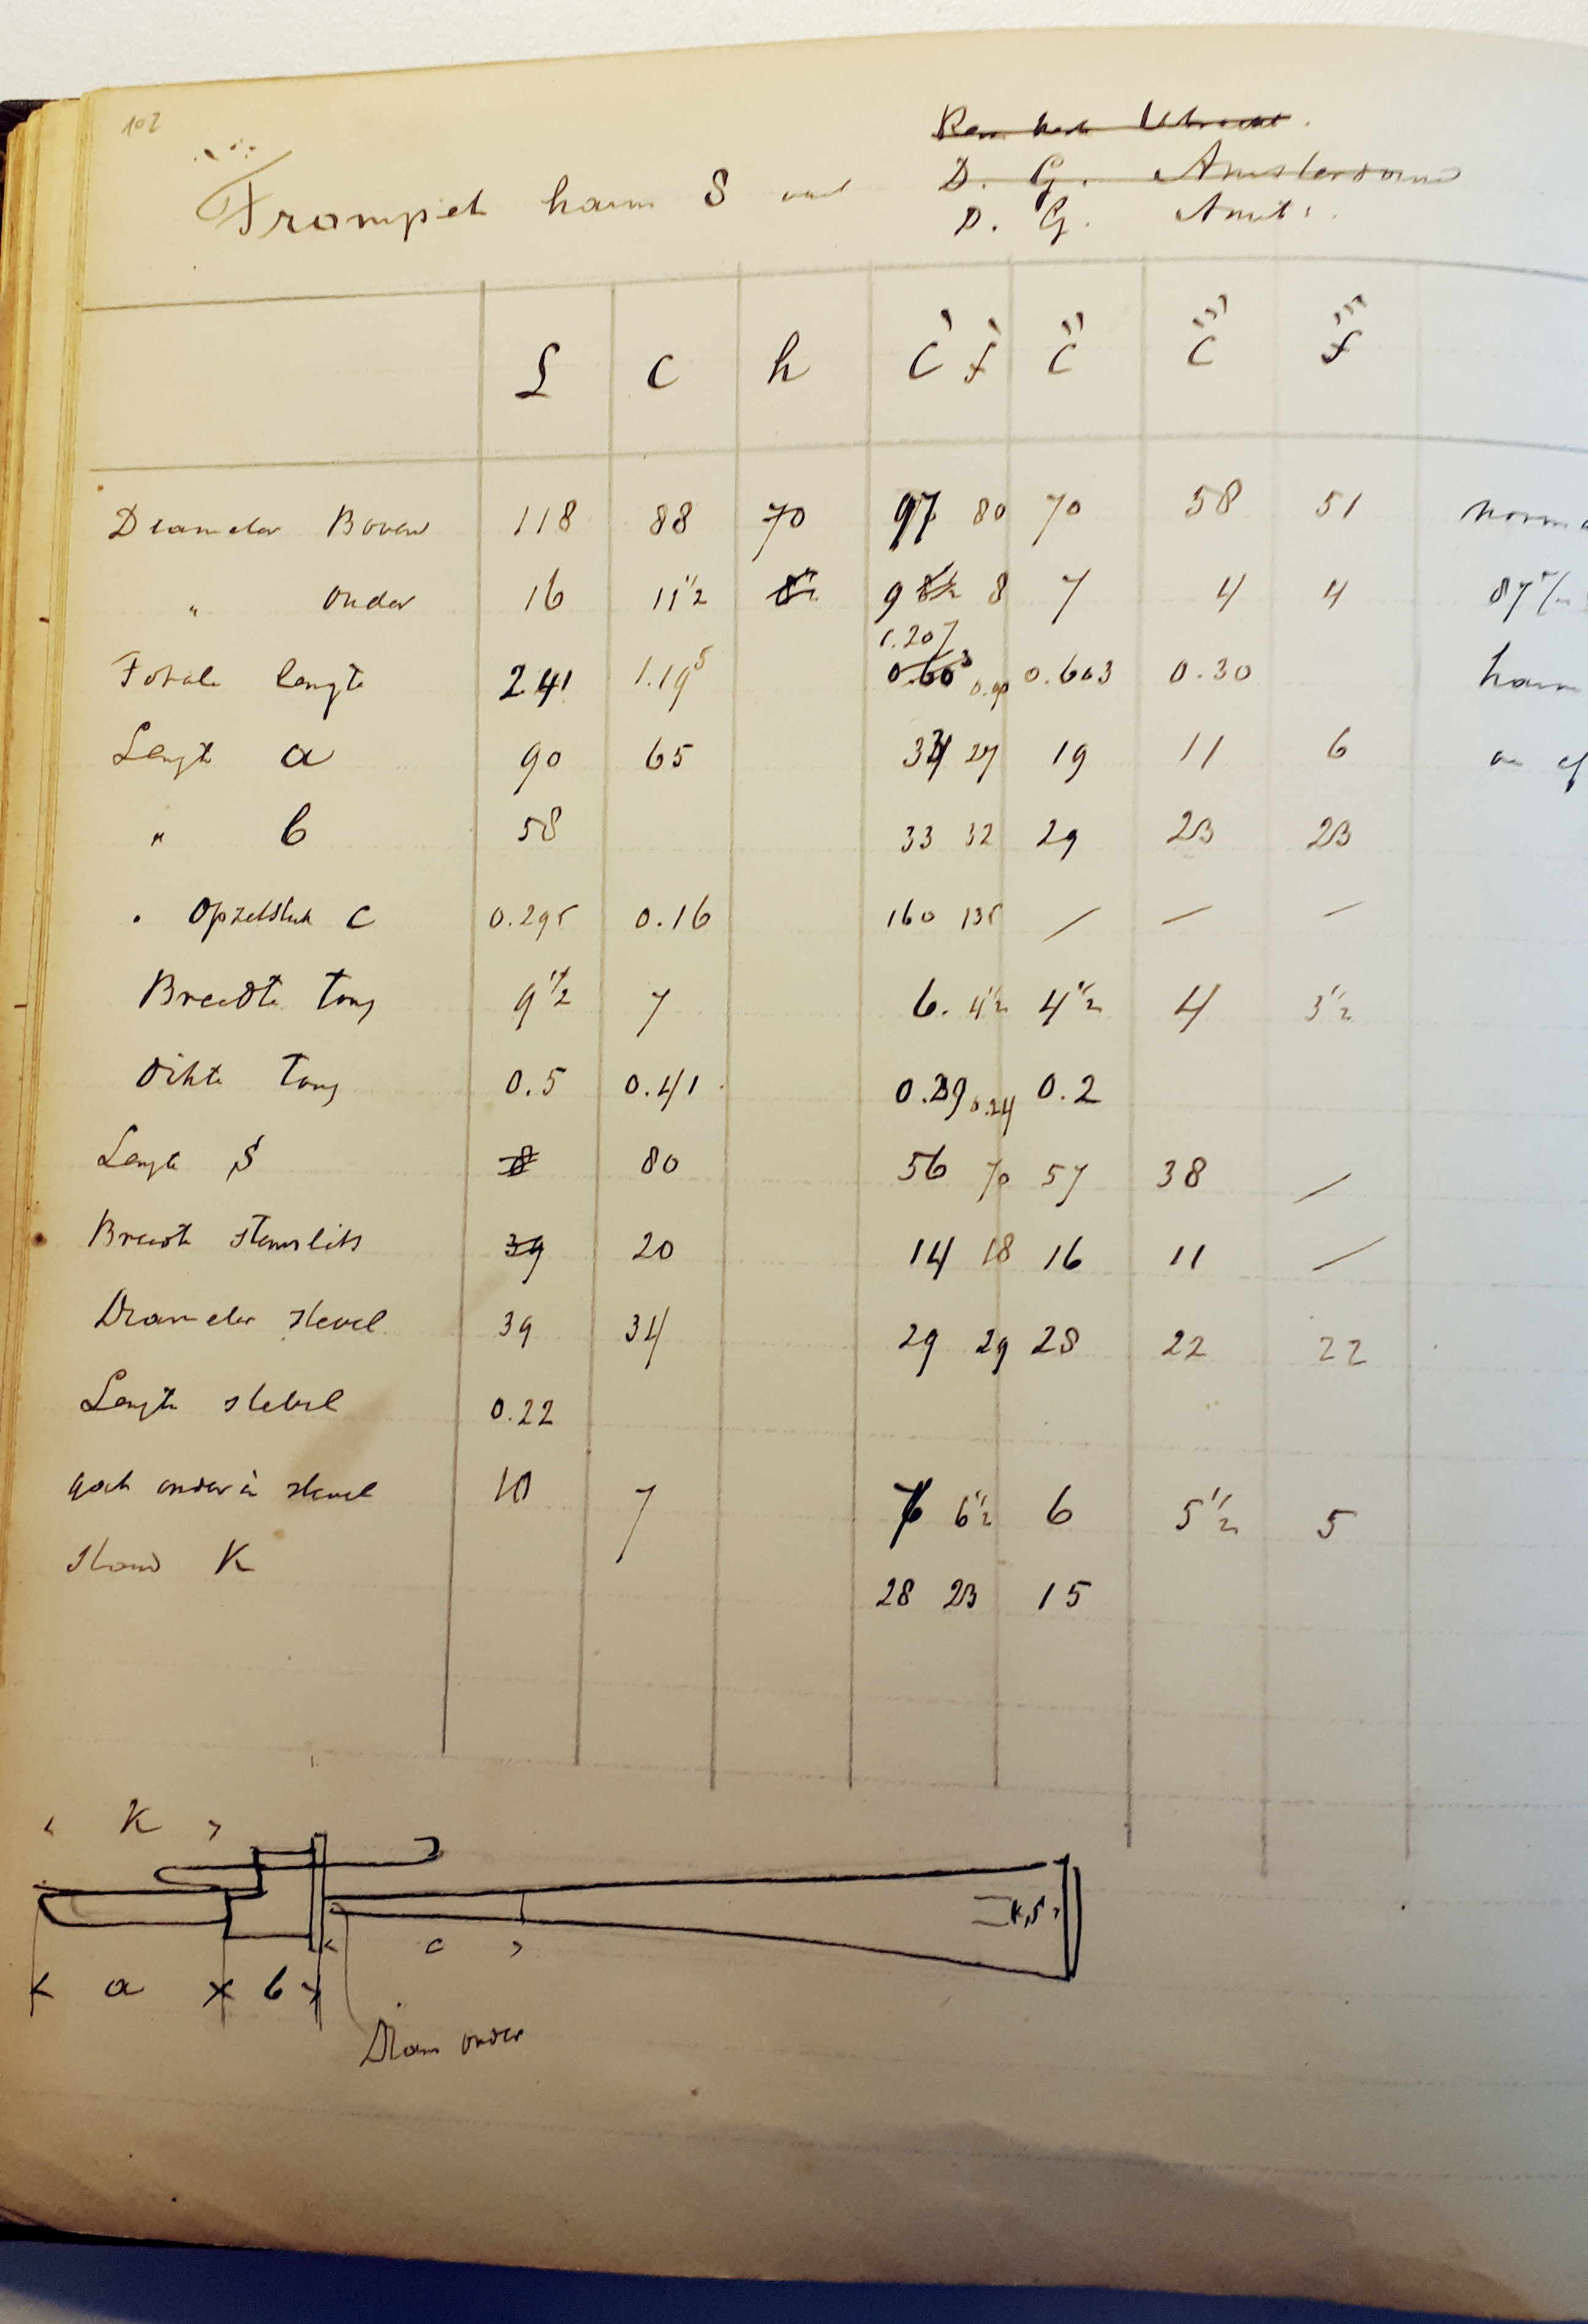 102
D. G. Amsterdam
Trompet harm 8 voet
D. G. Amst.
C c h c' f' c'' c''' f'''
Diameter Boven 118 88 70 97 80 70 58 51 norm
" onder 16 11 1/2 8 1/2 9 8 1/2 8 7 4 4
1.207
Totale lengte 2.41 1.19⁵ 0.60³ 0.90 0.603 0.30 harm
Lengte a 90 65 34 27 19 11 6
" b 58 33 32 29 23 23
" Opzetstuk c 0.295 0.16 160 135 / — —
Breedte Tong 9 1/2 7 6. 4 1/2 4 1/2 4 3 1/2
Dikte Tong 0.5 0.41 0.29 0.24 0.2
Lengte S 8 80 56 70 57 38 /
Breedte stemslits 39 20 14 18 16 11 /
Diameter stevel 39 34 29 29 28 22 22
Lengte stevel 0.22
gat onder in stevel 10 7 6 6 1/2 6 5 1/2 5
Stand K 28 23 15
< K >
S
< c >
< a × b >
Diam onder